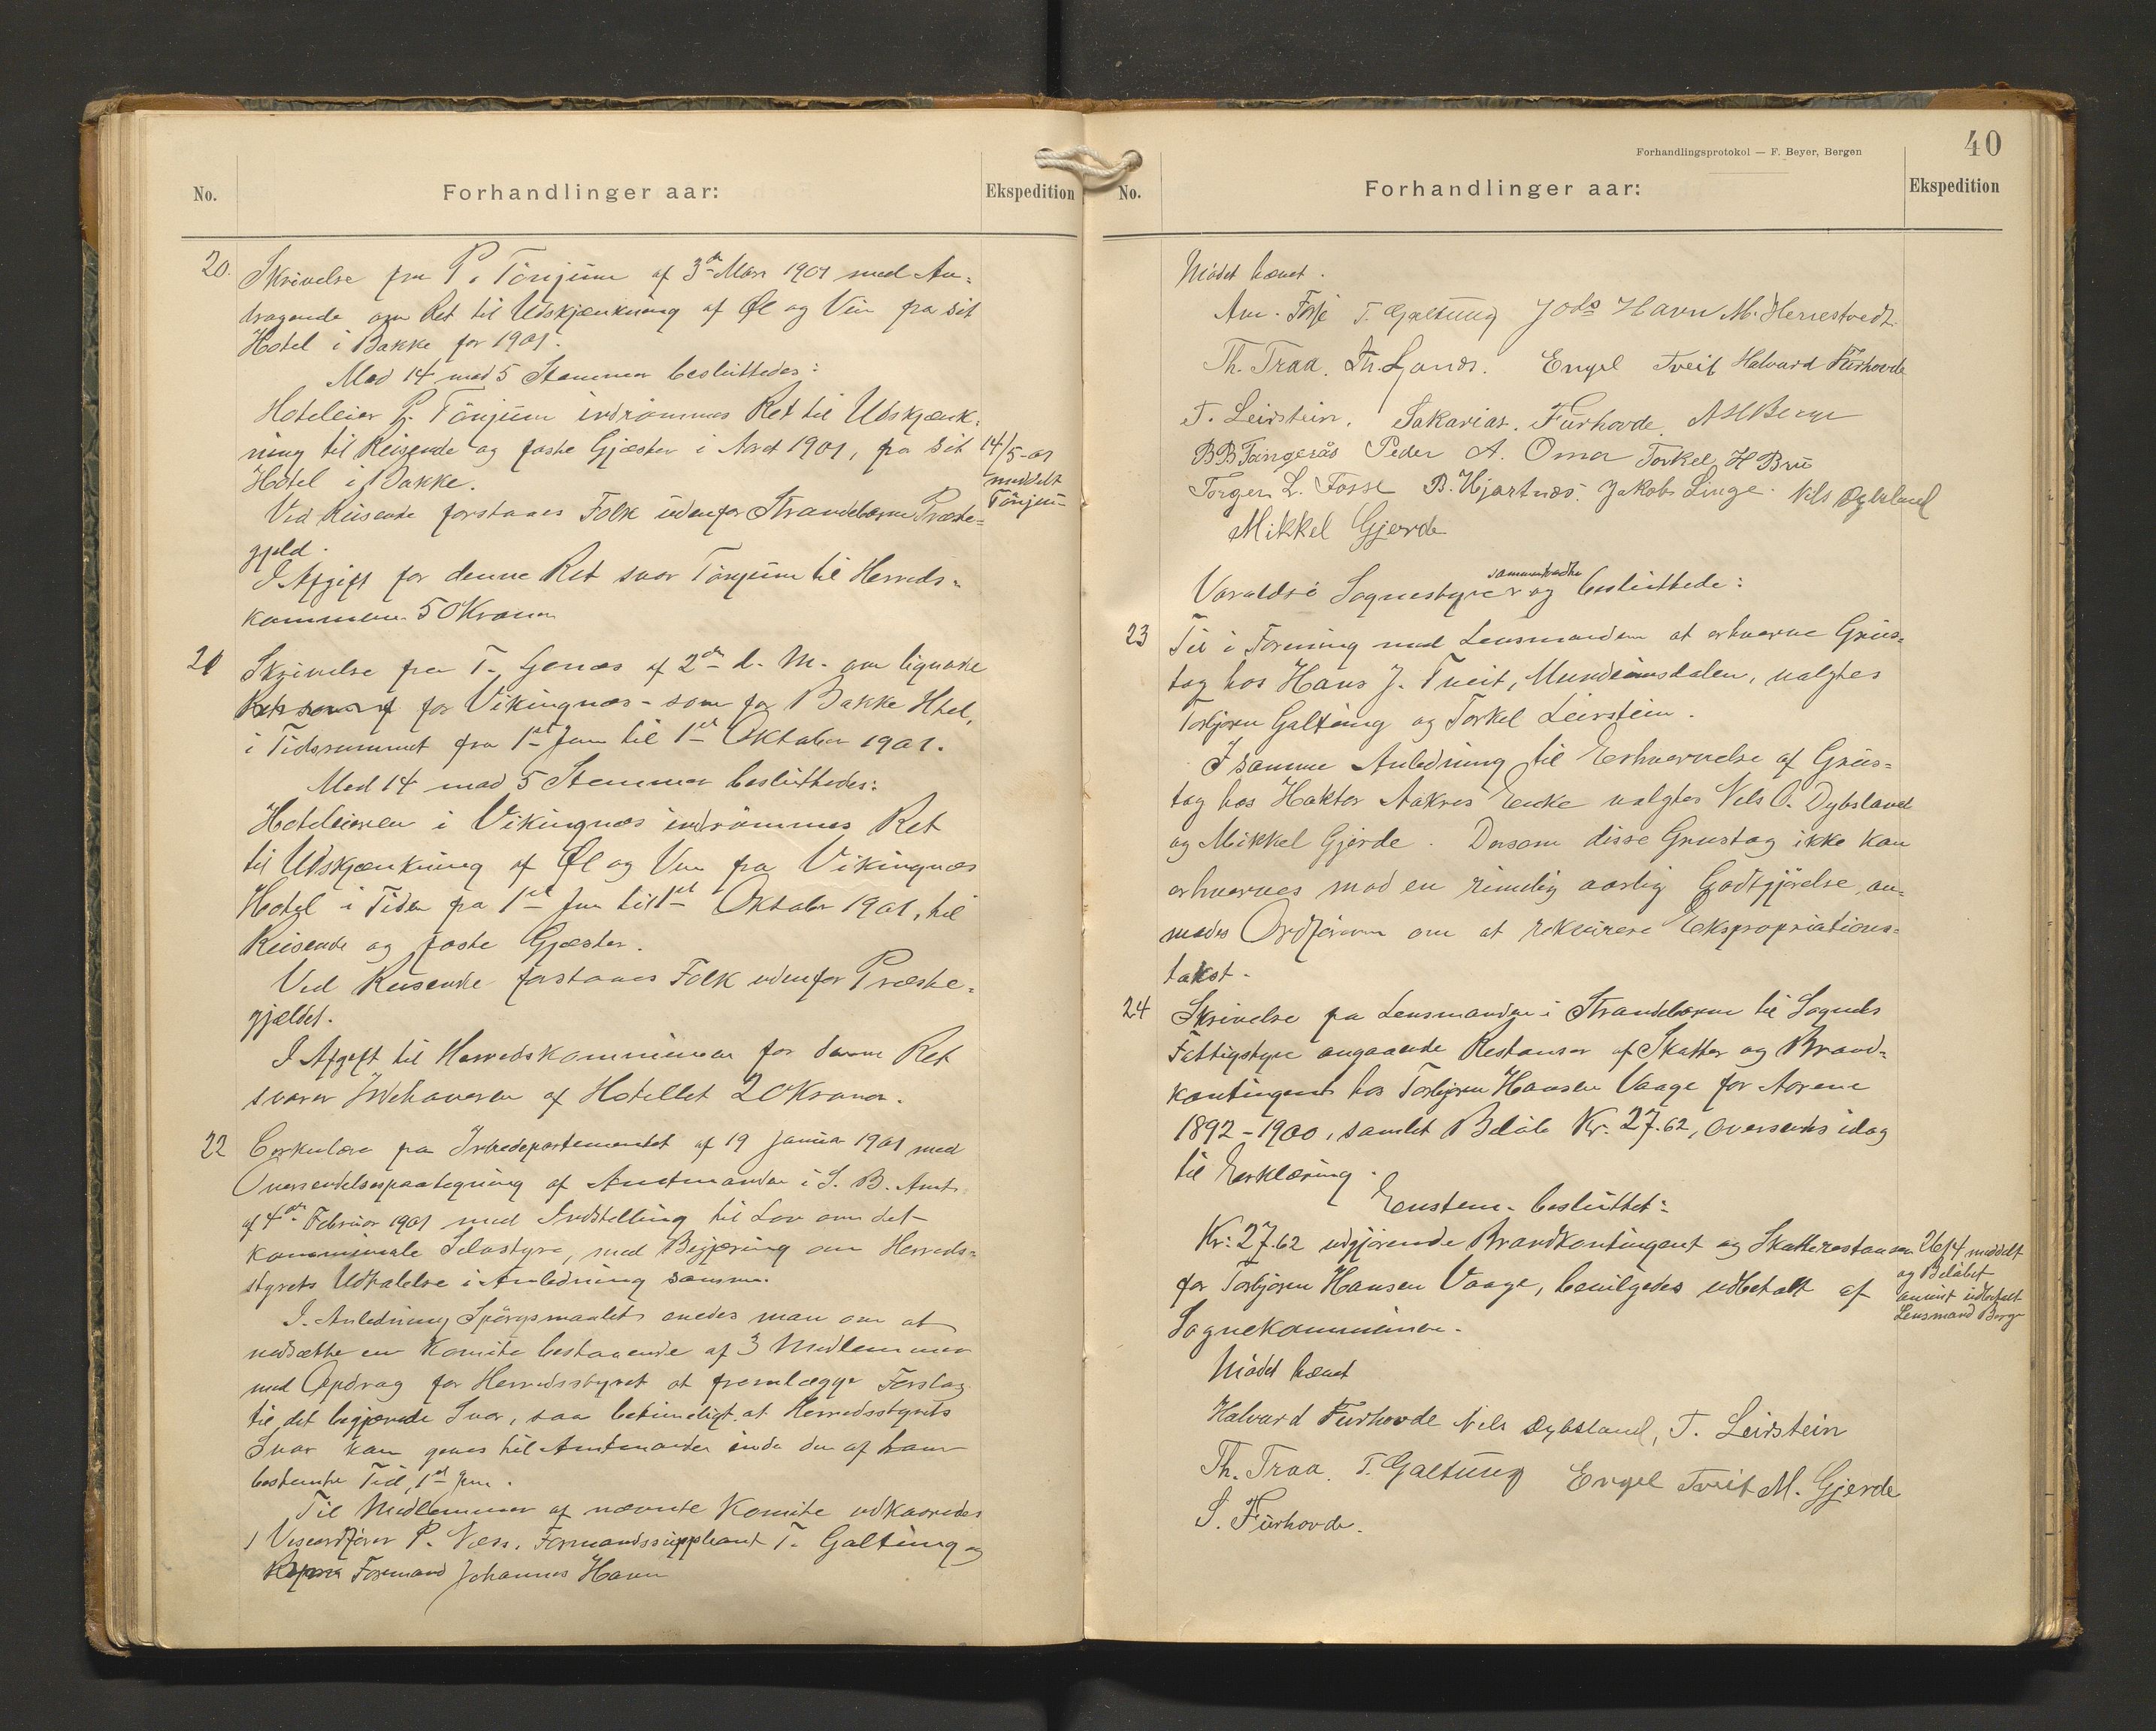 No.
Forhandlinger aar:
Ekspedition
20. Skrivelse fra P. Tönjum af 3die Mars 1901 med An-
dragende om Ret til Udskjænkning af Øl og Vin fra sit
Hotel i Bakke for 1901.
Med 14 mod 5 Stemmer besluttedes:
Hoteleier P. Tönjum indrömmes Ret til Udskjænk-
ning til Reisende og faste Gjæster i Aaret 1901, fra sit
Hotel i Bakke.
14/5-01
meddelt
Tönjum
Ved Reisende forstaaes Folk udenfor Strandebarm Præste-
gjeld.
I Afgift for denne Ret svar Tönjum til Herreds-
kommunen 50 Kroner
21 Skrivelse fra T. Genæs af 2den d. M. om lignende
Ret for Vikingnæs - som for Bakke Hotel,
i Tidsrummet fra 1ste Juni til 1ste Oktober 1901.
Med 14 mod 5 Stemmer besluttedes:
Hoteleieren i Vikingnæs indrömmes Ret
til Udskjænkning af Øl og Vin fra Vikingnæs
Hotel i Tiden fra 1ste Juni til 1ste Oktober 1901, til
Reisende og faste Gjæster.
Ved Reisende forstaaes Folk udenfor Præste-
gjældet.
I Afgift til Herredskommunen for denne Ret
svarer Indehaveren af Hotellet 20 Kroner.
22 Cirkulære fra Indredepartementet af 19 Januar 1901 med
Oversendelsespaategning af Amtmanden i S. B. Amt
af 4de Februar 1901 med Indstilling til Lov om det
kommunale Selvstyre, med Begjæring om Herreds-
styrets Udtalelse i Anledning samme.
I Anledning Spörgsmaalet enedes man om at
nedsætte en Komite bestaaende af 3 Medlemmer
med Opdrag for Herredsstyret at fremlægge Forslag
til det begjærede Svar, saa betimeligt at Herredsstyrets
Svar kan gives til Amtmanden inden den af ham
bestemte Tid, 1ste Juni.
Til Medlemmer af nævnte Komite udkaaredes
Viceordfører P. Næss, Formandssuppleant T. Galtung og
Formand Johannes Havn
Forhandlingsprotokol — F. Beyer, Bergen
40
No.
Forhandlinger aar:
Ekspedition
Mödet hævet.
Am. Fosse T. Galtung Johs Havn M. Herrestvedt.
Th. Traa. Engel Tveit Halvard Furhovde
T. Leirstein. Sakarias. Furhovde. A H Berge
B B Tangerås Peder A. Oma Torkel H Bru
Torger L. Fosse B. Hjartnæs. Jakob Linge. Nils Dybsland
Mikkel Gjerde
Varaldsö Sognestyre sammentraadte og besluttede:
23 Til i Forening med Lensmanden at erhverve Grus-
tag hos Hans J. Tveit, Mundeimsdalen, valgtes
Torbjørn Galtung og Torkel Leirstein.
I samme Anledning til Erhvervelse af Grus-
tag hos Haktor Aakres Enke valgtes Nels O. Dybsland
og Mikkel Gjerde. Dersom disse Grustag ikke kan
erhverves mod en rimelig aarlig Godtgjörelse, an-
modes Ordföreren om at rekvirere Ekspropriations-
takst.
24 Skrivelse fra Lensmanden i Strandebarm til Sognets
Fattigstyre angaaende Restanser af Skatter og Brand-
kontingent hos Torbjørn Hansen Vaage for Aarene
1892-1900, samlet Belöb Kr. 27.62, oversendes idag
til Erklæring.
Enstem. besluttet:
Kr: 27.62 udgjörende Brandkontingent og Skatterestanser
for Torbjørn Hansen Vaage, bevilgedes udbetalt af
Sognekommunen.
26/4 meddelt
og Belöbet
anvist udbetalt
Lensmand Berge
Mödet hævet
Halvard Furhovde Nils Dybsland, T. Leirstein
Th. Traa. T. Galtung Engel Tveit M. Gjerde
S. Furhovde.